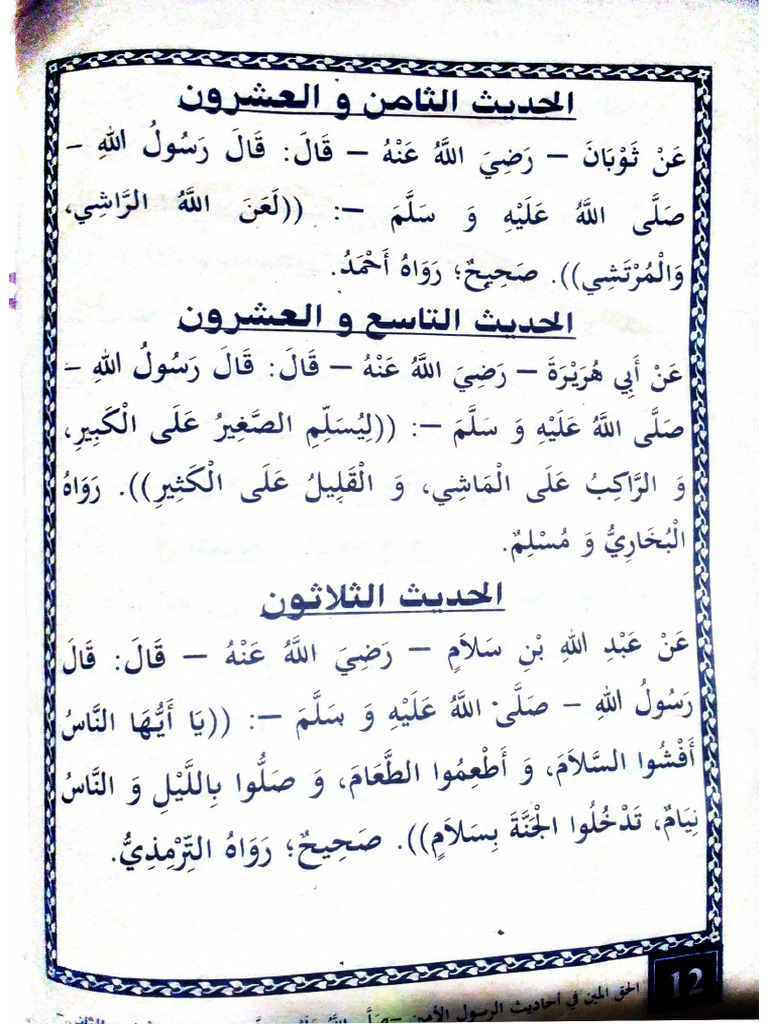 الحديث الثامن و العشرون
عَنْ ثَوْبَانَ – رَضِيَ اللَّهُ عَنْهُ – قَالَ: قَالَ رَسُولُ اللهِ –
صَلَّى اللَّهُ عَلَيْهِ وَ سَلَّمَ –: ((لَعَنَ اللَّهُ الرَّاشِي،
وَالْمُرْتَشِي)). صَحِيحٌ؛ رَوَاهُ أَحْمَدُ.
الحديث التاسع و العشرون
عَنْ أَبِي هُرَيْرَةَ – رَضِيَ اللَّهُ عَنْهُ – قَالَ: قَالَ رَسُولُ اللهِ –
صَلَّى اللَّهُ عَلَيْهِ وَ سَلَّمَ –: ((لِيُسَلِّمِ الصَّغِيرُ عَلَى الْكَبِيرِ،
وَ الرَّاكِبُ عَلَى الْمَاشِي، وَ الْقَلِيلُ عَلَى الْكَثِيرِ)). رَوَاهُ
الْبُخَارِيُّ وَ مُسْلِمٌ.
الحديث الثلاثون
عَنْ عَبْدِ اللهِ بْنِ سَلاَمٍ – رَضِيَ اللَّهُ عَنْهُ – قَالَ: قَالَ
رَسُولُ اللهِ – صَلَّى اللَّهُ عَلَيْهِ وَ سَلَّمَ –: ((يَا أَيُّهَا النَّاسُ
أَفْشُوا السَّلاَمَ، وَ أَطْعِمُوا الطَّعَامَ، وَ صَلُّوا بِاللَّيْلِ وَ النَّاسُ
نِيَامٌ، تَدْخُلُوا الْجَنَّةَ بِسَلاَمٍ)). صَحِيحٌ؛ رَوَاهُ التِّرْمِذِيُّ.
12 الحق المبين في أحاديث الرسول الأمين –صَلَّى اللَّهُ